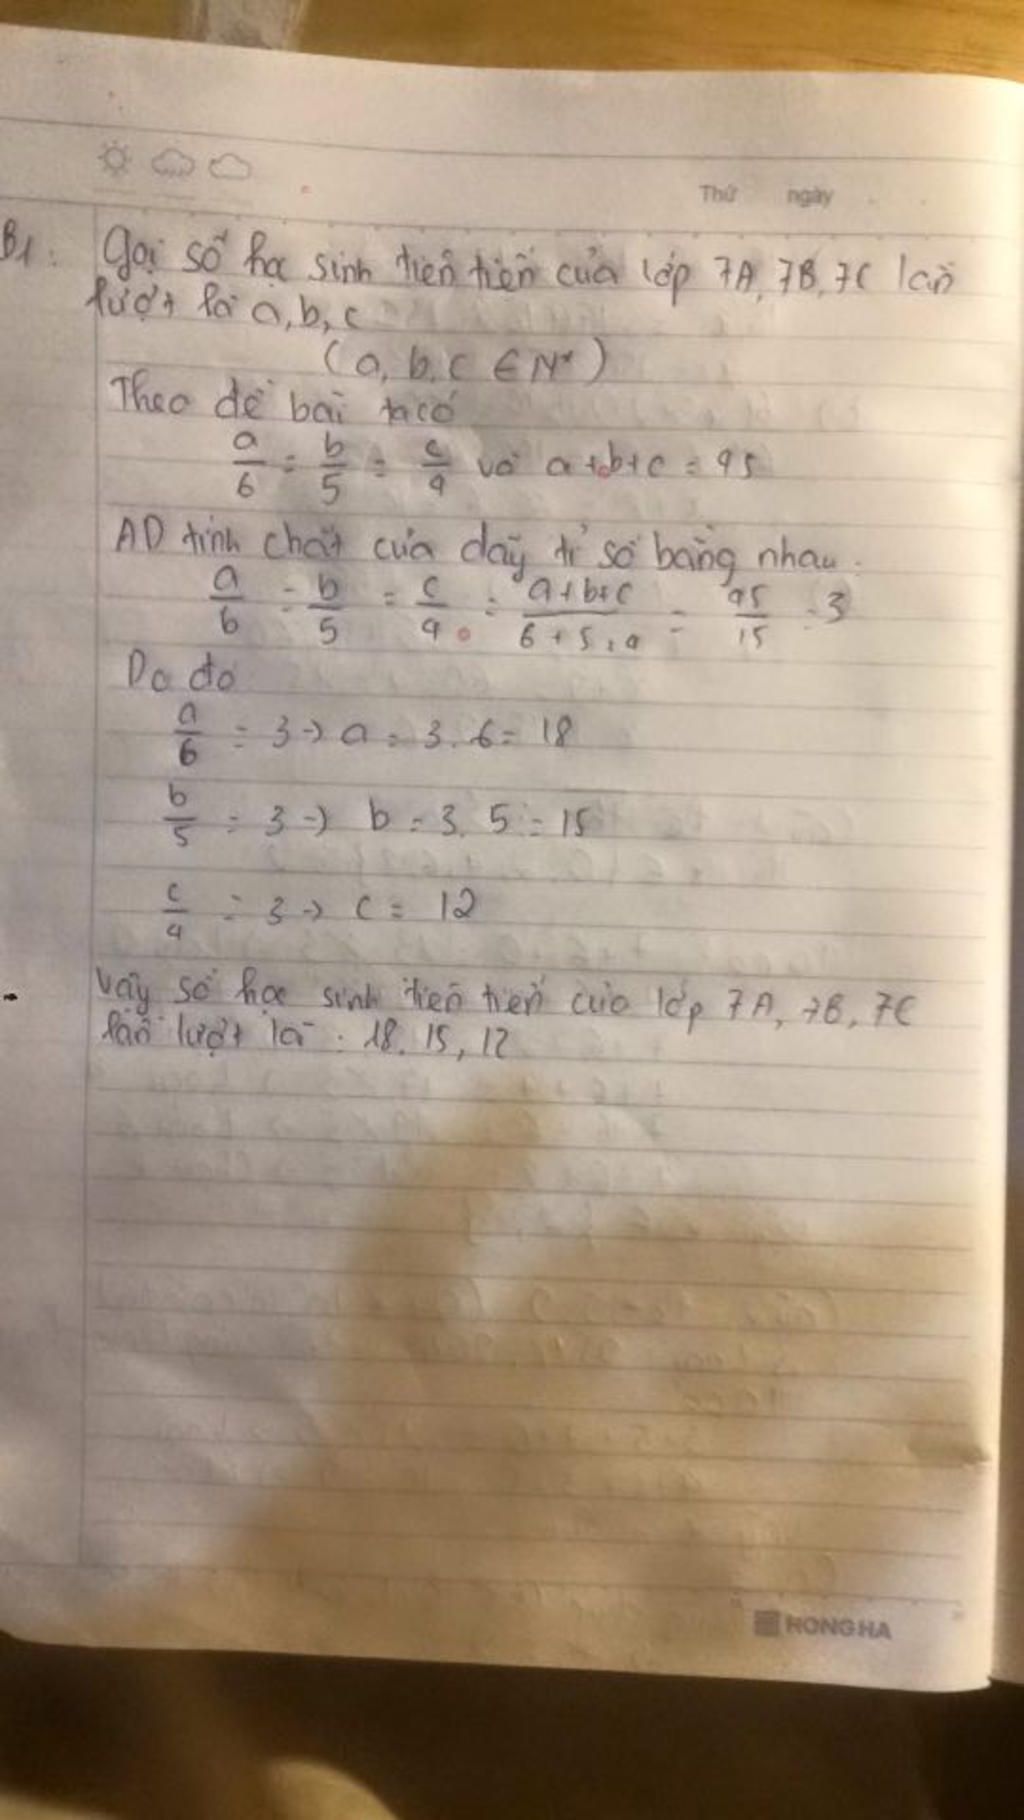 Thứ ngày
B1: Gọi số học sinh tiên tiến của lớp 7A, 7B, 7C lần
lượt là a, b, c
(a, b, c ∈ N*)
Theo đề bài ta có
a/6 = b/5 = c/4 và a+b+c = 45
AD tính chất của dãy tỉ số bằng nhau.
a/6 = b/5 = c/4 = a+b+c/6+5+4 = 45/15 = 3
Do đó
a/6 = 3 → a = 3.6 = 18
b/5 = 3 → b = 3.5 = 15
c/4 = 3 → c = 12
Vậy số học sinh tiên tiến của lớp 7A, 7B, 7C
lần lượt là : 18, 15, 12
HONG HA